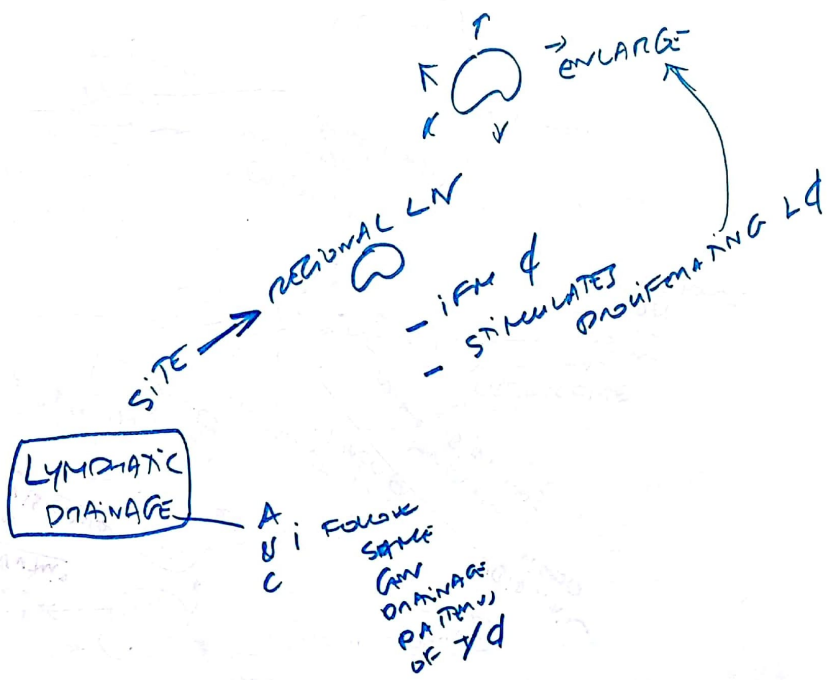 → ENLARGE
REGIONAL LN
- iFM ¢
- STIMULATES
PROLIFERATING L¢
SITE →
LYMPHATIC
DRAINAGE
A
V i FOLLOW
C SAME
DRAINAGE
PATTERNS
OF